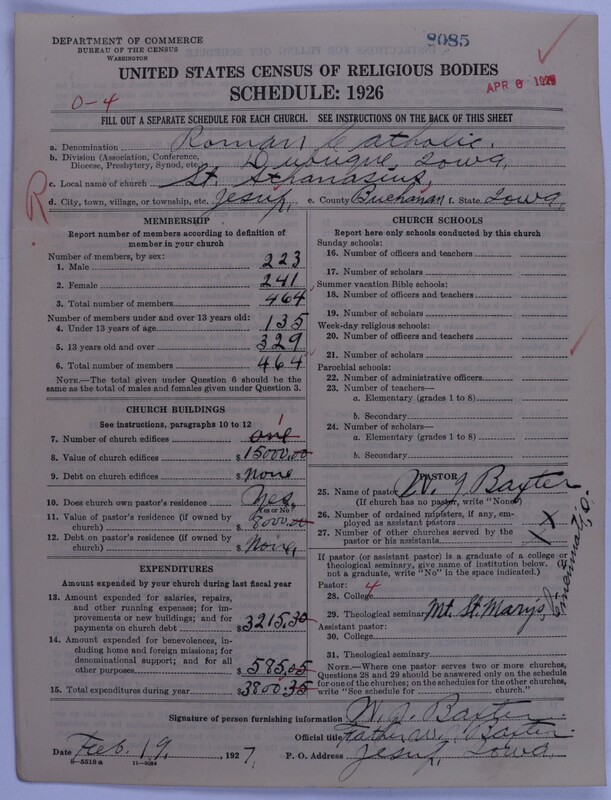 DEPARTMENT OF COMMERCE
BUREAU OF THE CENSUS
WASHINGTON
8085
APR 8 1927
UNITED STATES CENSUS OF RELIGIOUS BODIES
SCHEDULE: 1926
0-4
FILL OUT A SEPARATE SCHEDULE FOR EACH CHURCH. SEE INSTRUCTIONS ON THE BACK OF THIS SHEET
a. Denomination Roman Catholic.
b. Division (Association, Conference, Diocese, Presbytery, Synod, etc.) Dubuque, Iowa,
c. Local name of church St. Athanasius,
R
d. City, town, village, or township, etc. Jesup, e. County Buchanan f. State Iowa,
MEMBERSHIP
Report number of members according to definition of
member in your church
Number of members, by sex:
1. Male 223
2. Female 241
3. Total number of members 464
Number of members under and over 13 years old:
4. Under 13 years of age 135
5. 13 years old and over 329
6. Total number of members 464
NOTE.—The total given under Question 6 should be the
same as the total of males and females given under Question 3.
CHURCH BUILDINGS
See instructions, paragraphs 10 to 12
7. Number of church edifices one 1
8. Value of church edifices $ 15000.00
9. Debt on church edifices $ None
10. Does church own pastor's residence? Yes,
Yes or No
11. Value of pastor's residence (if owned by
church) $ 8000.00
12. Debt on pastor's residence (if owned by
church) $ None,
EXPENDITURES
Amount expended by your church during last fiscal year
13. Amount expended for salaries, repairs,
and other running expenses; for im-
provements or new buildings; and for
payments on church debt $ 3215.30
14. Amount expended for benevolences, in-
cluding home and foreign missions; for
denominational support; and for all
other purposes $ 585.05
15. Total expenditures during year $ 3800.35
CHURCH SCHOOLS
Report here only schools conducted by this church
Sunday schools:
16. Number of officers and teachers
17. Number of scholars
Summer vacation Bible schools:
18. Number of officers and teachers
19. Number of scholars
Week-day religious schools:
20. Number of officers and teachers
21. Number of scholars
Parochial schools:
22. Number of administrative officers
23. Number of teachers—
a. Elementary (grades 1 to 8)
b. Secondary
24. Number of scholars—
a. Elementary (grades 1 to 8)
b. Secondary
PASTOR
25. Name of pastor W. J. Baxter
(If church has no pastor, write "None")
26. Number of ordained ministers, if any, em-
ployed as assistant pastors X
27. Number of other churches served by the
pastor or his assistants 1
If pastor (or assistant pastor) is a graduate of a college or
theological seminary, give name of institution below. (If
not a graduate, write "No" in the space indicated.)
Pastor: 4
28. College
29. Theological seminary Mt. St. Mary's, Cincinnati, O.
Assistant pastor:
30. College
31. Theological seminary
NOTE.—Where one pastor serves two or more churches,
Questions 28 and 29 should be answered only on the schedule
for one of the churches; on the schedules for the other churches,
write "See schedule for church."
Signature of person furnishing information W. J. Baxter
Official title Father W. J. Baxter
Date Feb. 19, 1927, P. O. Address Jesup, Iowa,
8-5518 a 11-9084